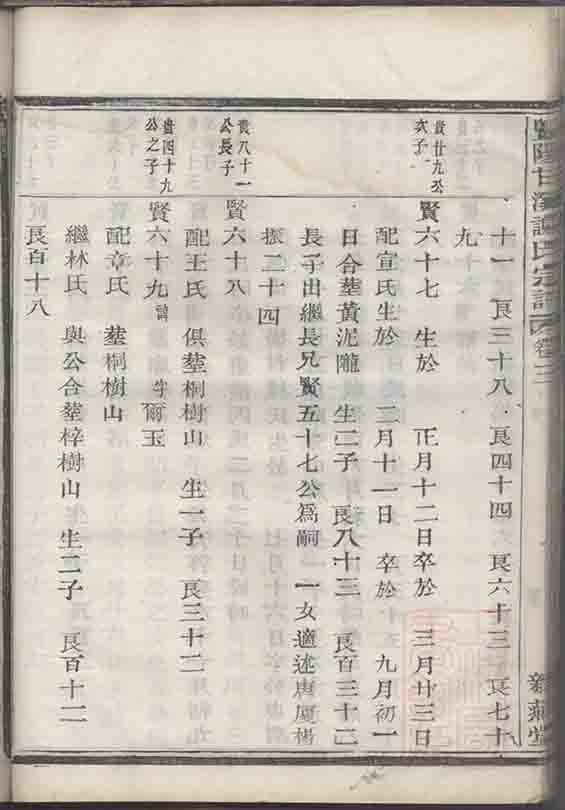 暨陽甘溪 氏宗譜 卷三
新 堂
十一 良三十八 良四十四 良六十三 良七十
九
貴廿九公次子
賢六十七 生於 正月十二日卒於 三月廿三日
配宣氏生於 二月十一日 卒於 九月初一
日合塟黃泥隴 生二子 良八十三 良百三十二
長子出繼長兄賢五十七公為嗣 一女適述唐厦楊
振二十四
貴八十一公長子
賢六十八
配王氏 俱塟桐樹山 生一子 良三十二
貴四十九公之子
賢六十九 諱 字爾玉
配章氏 塟桐樹山
繼林氏 與公合塟梓樹山 生二子 良百十二
良百十八